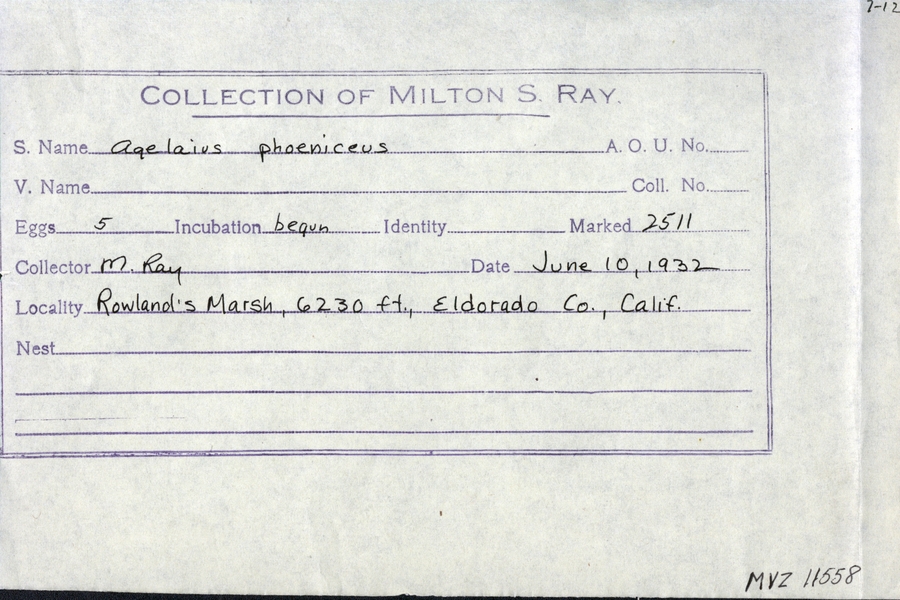 7-12
COLLECTION OF MILTON S. RAY.
S. Name Agelaius phoeniceus A. O. U. No.
V. Name Coll. No.
Eggs 5 Incubation begun Identity Marked 2511
Collector M. Ray Date June 10, 1932
Locality Rowland's Marsh, 6230 ft., Eldorado Co., Calif.
Nest
MVZ 11558